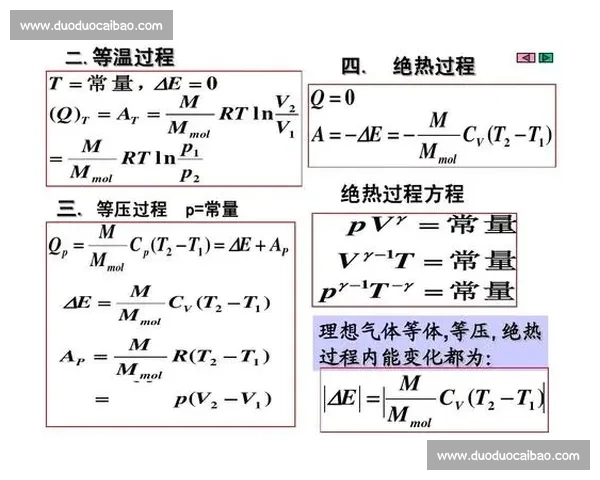 www.duoduocaibao.com
二.等温过程
T = 常量 , ΔE = 0
(Q)_T = A_T = M/M_mol RT ln V_2/V_1
= M/M_mol RT ln p_1/p_2
三. 等压过程 p=常量
Q_p = M/M_mol C_p(T_2 − T_1) = ΔE + A_P
ΔE = M/M_mol C_V (T_2 − T_1)
A_P = M/M_mol R(T_2 − T_1)
= p(V_2 − V_1)
四. 绝热过程
Q = 0
A = −ΔE = − M/M_mol C_V (T_2 − T_1)
绝热过程方程
pV^γ = 常量
V^{γ−1}T = 常量
p^{γ−1}T^{−γ} = 常量
理想气体等体,等压, 绝热
过程内能变化都为:
|ΔE| = |M/M_mol C_V (T_2 − T_1)|
www.duoduocaibao.com